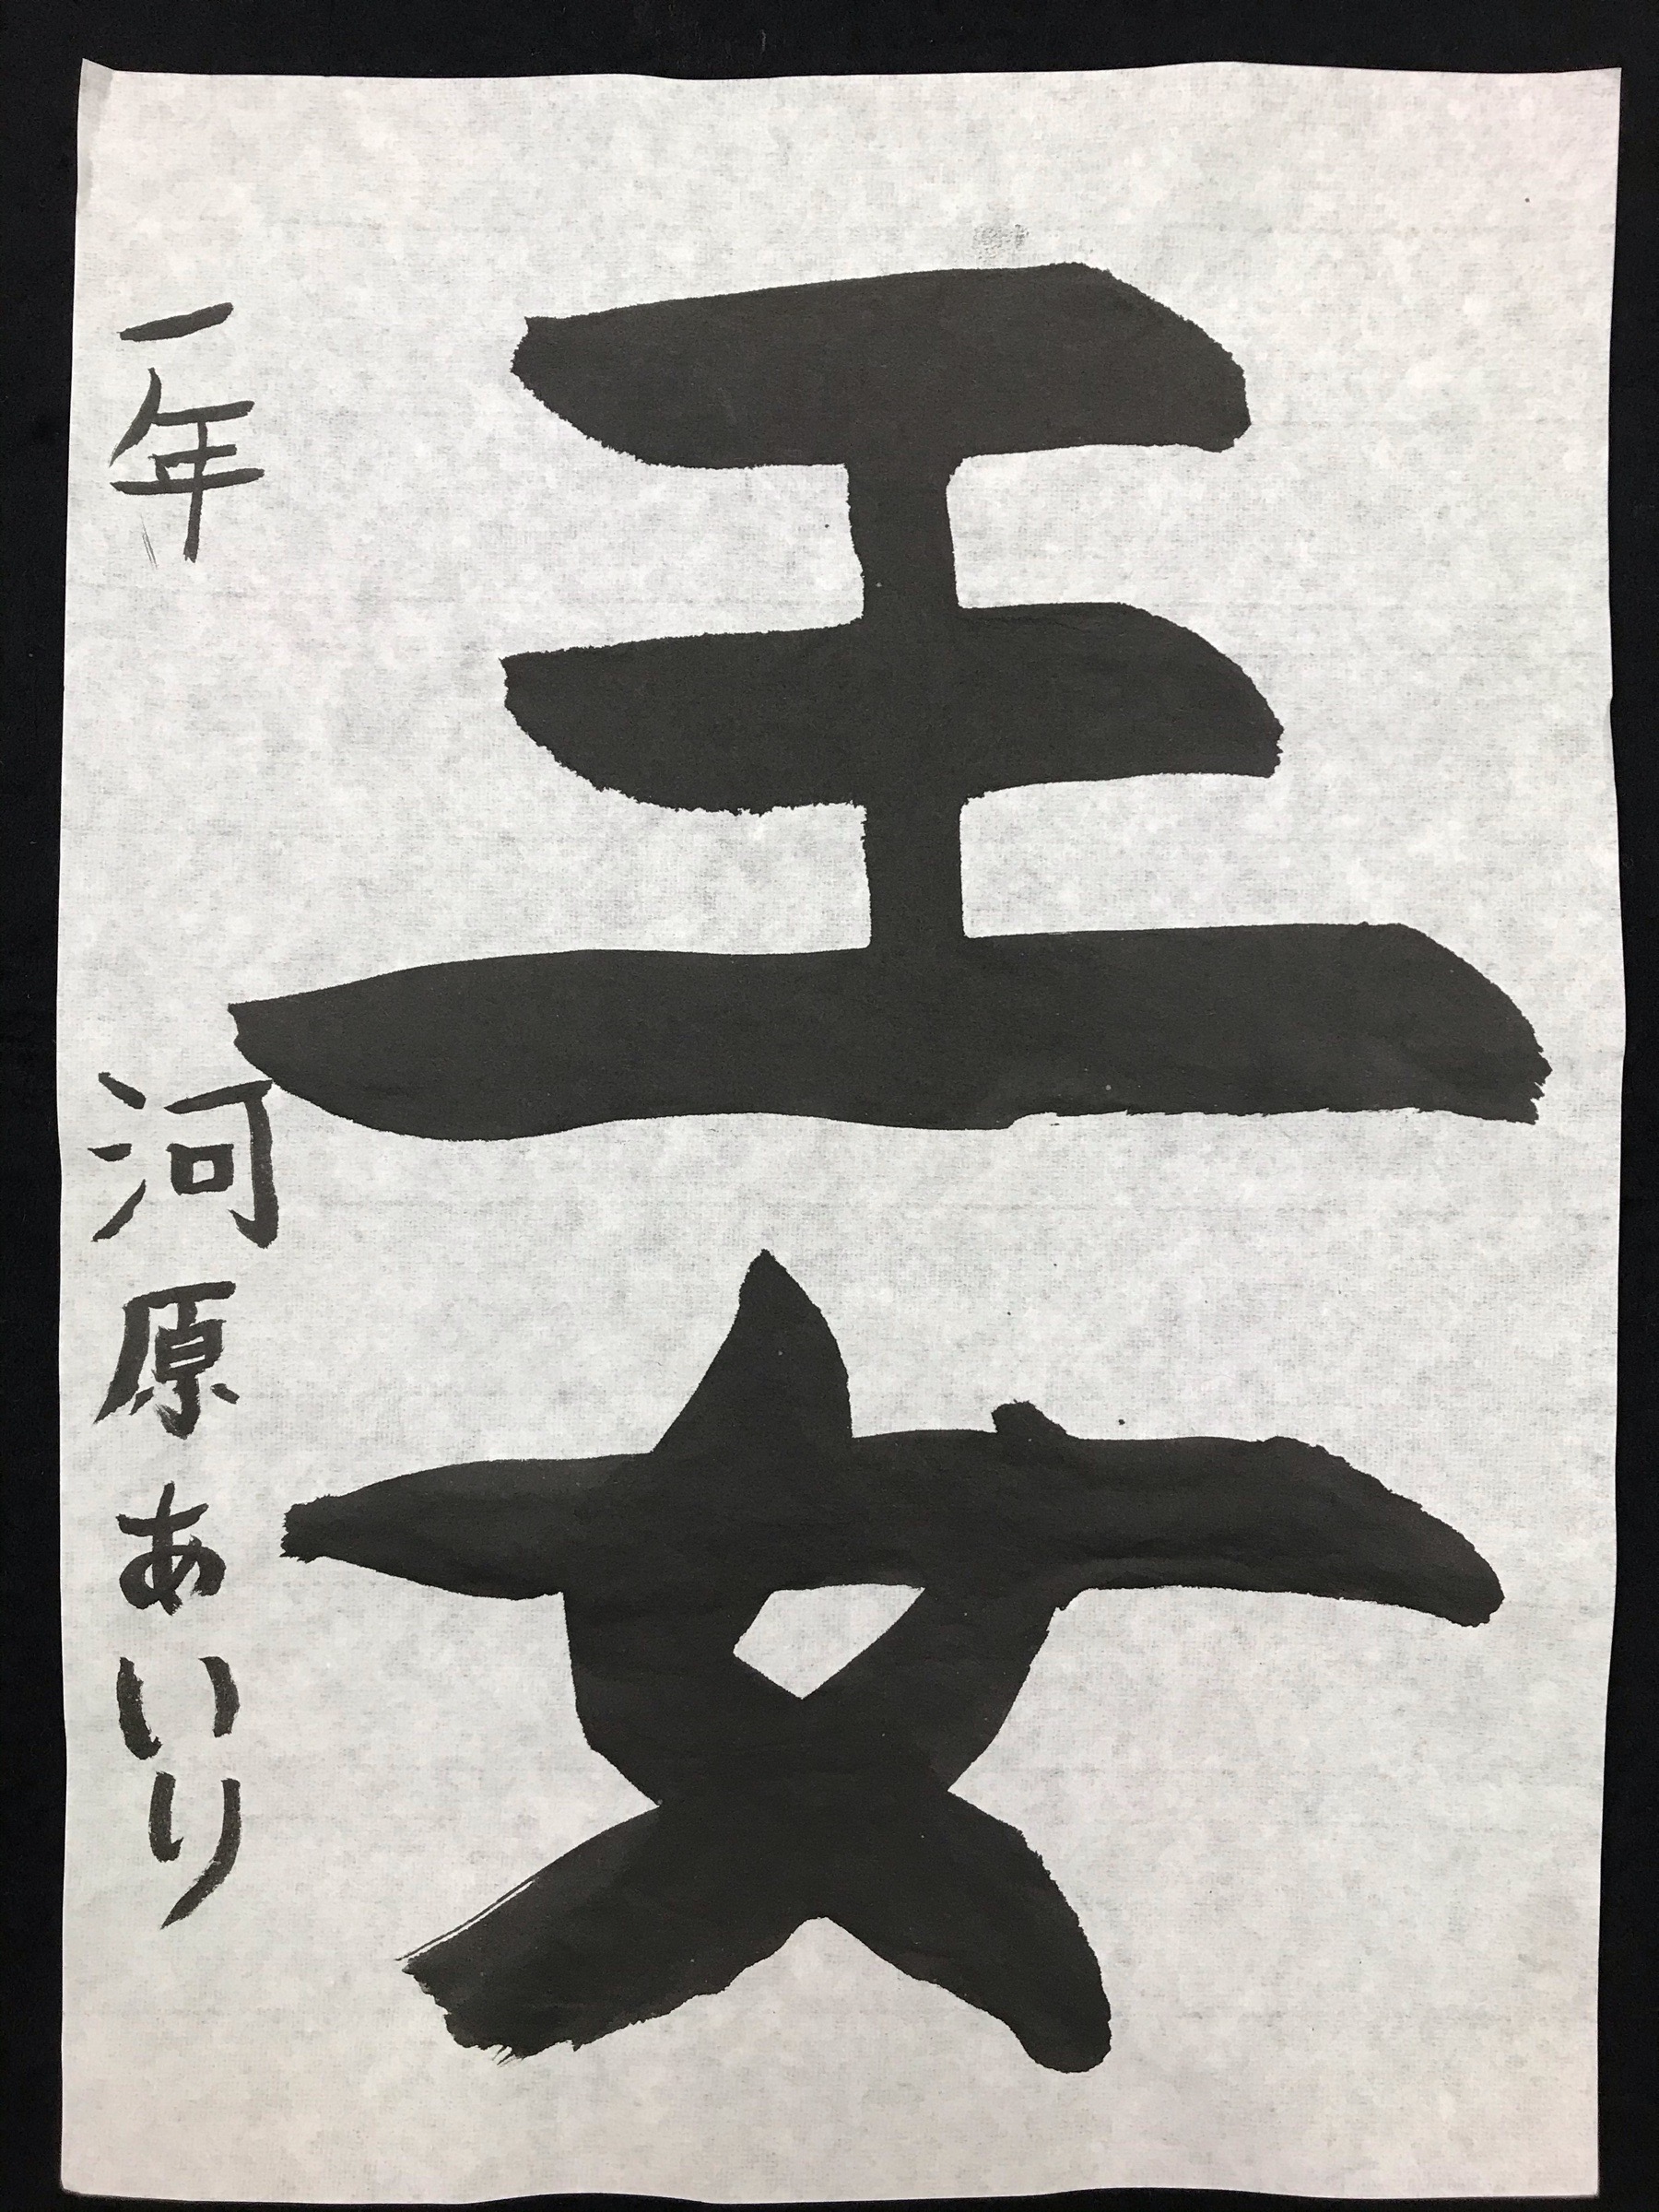 王女
一年 河原あいり